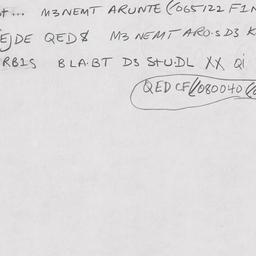 st... M3NEMT ARUNTE (/065122 FIN
E)DE QED8 M3 NEMT ARO.S D3 K
RBIS BLA.BT D3 STUDL XX Qi
QED CF(/080040 (